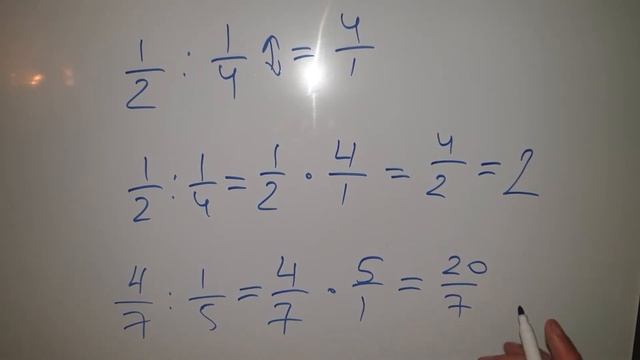 1/2 : 1/4 ↕ = 4/1
1/2 : 1/4 = 1/2 · 4/1 = 4/2 = 2
4/7 : 1/5 = 4/7 · 5/1 = 20/7